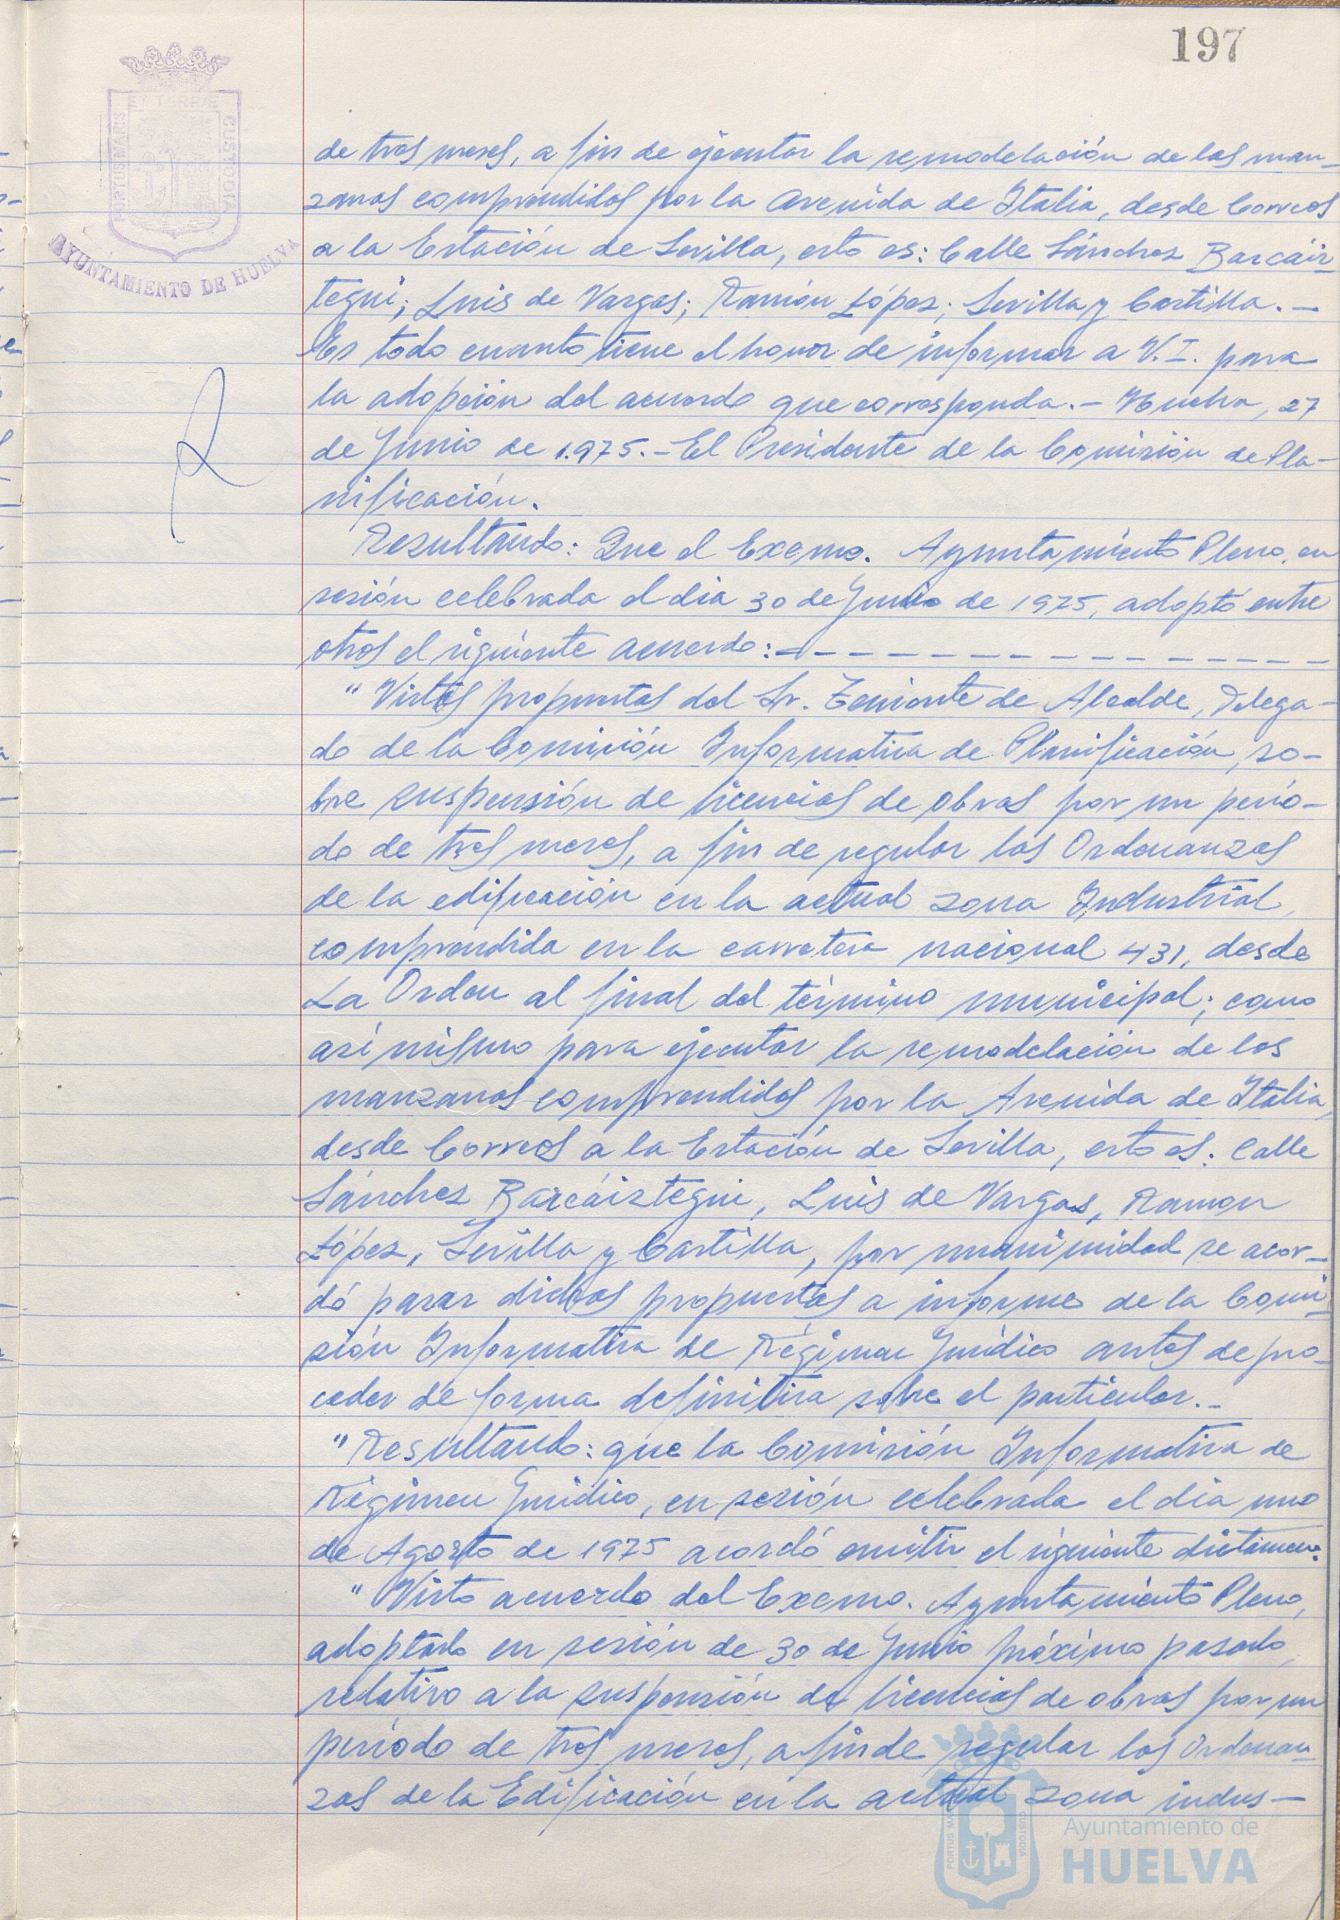 197
PORTUS MARIS ET TERRAE CUSTODIA
AYUNTAMIENTO DE HUELVA
de tres meses, a fin de ejecutar la remodelación de las man-
zanas comprendidas por la Avenida de Italia, desde Correos
a la Estación de Sevilla, esto es: Calle Sánchez Barcáiz-
tegui; Luis de Vargas; Ramón López; Sevilla y Castilla. —
Es todo cuanto tiene el honor de informar a V.I. para
la adopción del acuerdo que corresponda. — Huelva, 27
de Junio de 1.975. — El Presidente de la Comisión de Pla-
nificación.
Resultando: Que el Excmo. Ayuntamiento Pleno, en
sesión celebrada el dia 30 de Junio de 1975, adoptó entre
otros el siguiente acuerdo: — — — — — — — — — — — —
"Vistas propuestas del Sr. Teniente de Alcalde, Delega-
do de la Comisión Informativa de Planificación, so-
bre suspensión de licencias de obras por un perio-
do de tres meses, a fin de regular las Ordenanzas
de la edificación en la actual zona Industrial,
comprendida en la carretera nacional 431, desde
La Orden al final del término municipal; como
asi mismo para ejecutar la remodelación de las
manzanas comprendidas por la Avenida de Italia,
desde Correos a la Estación de Sevilla, esto es: Calle
Sánchez Barcáiztegui, Luis de Vargas, Ramon
López, Sevilla y Castilla, por unanimidad se acor-
dó pasar dichas propuestas a informe de la Comi-
sión Informativa de Régimen Jurídico antes de pro-
ceder de forma definitiva sobre el particular. —
"Resultando: que la Comisión Informativa de
Régimen Jurídico, en sesión celebrada el dia uno
de Agosto de 1975 acordó emitir el siguiente dictamen:
"Visto acuerdo del Excmo. Ayuntamiento Pleno,
adoptado en sesión de 30 de Junio próximo pasado,
relativo a la suspensión de licencias de obras por un
período de tres meses, a fin de regular las Ordenan-
zas de la Edificación en la actual zona indus-
Ayuntamiento de
HUELVA